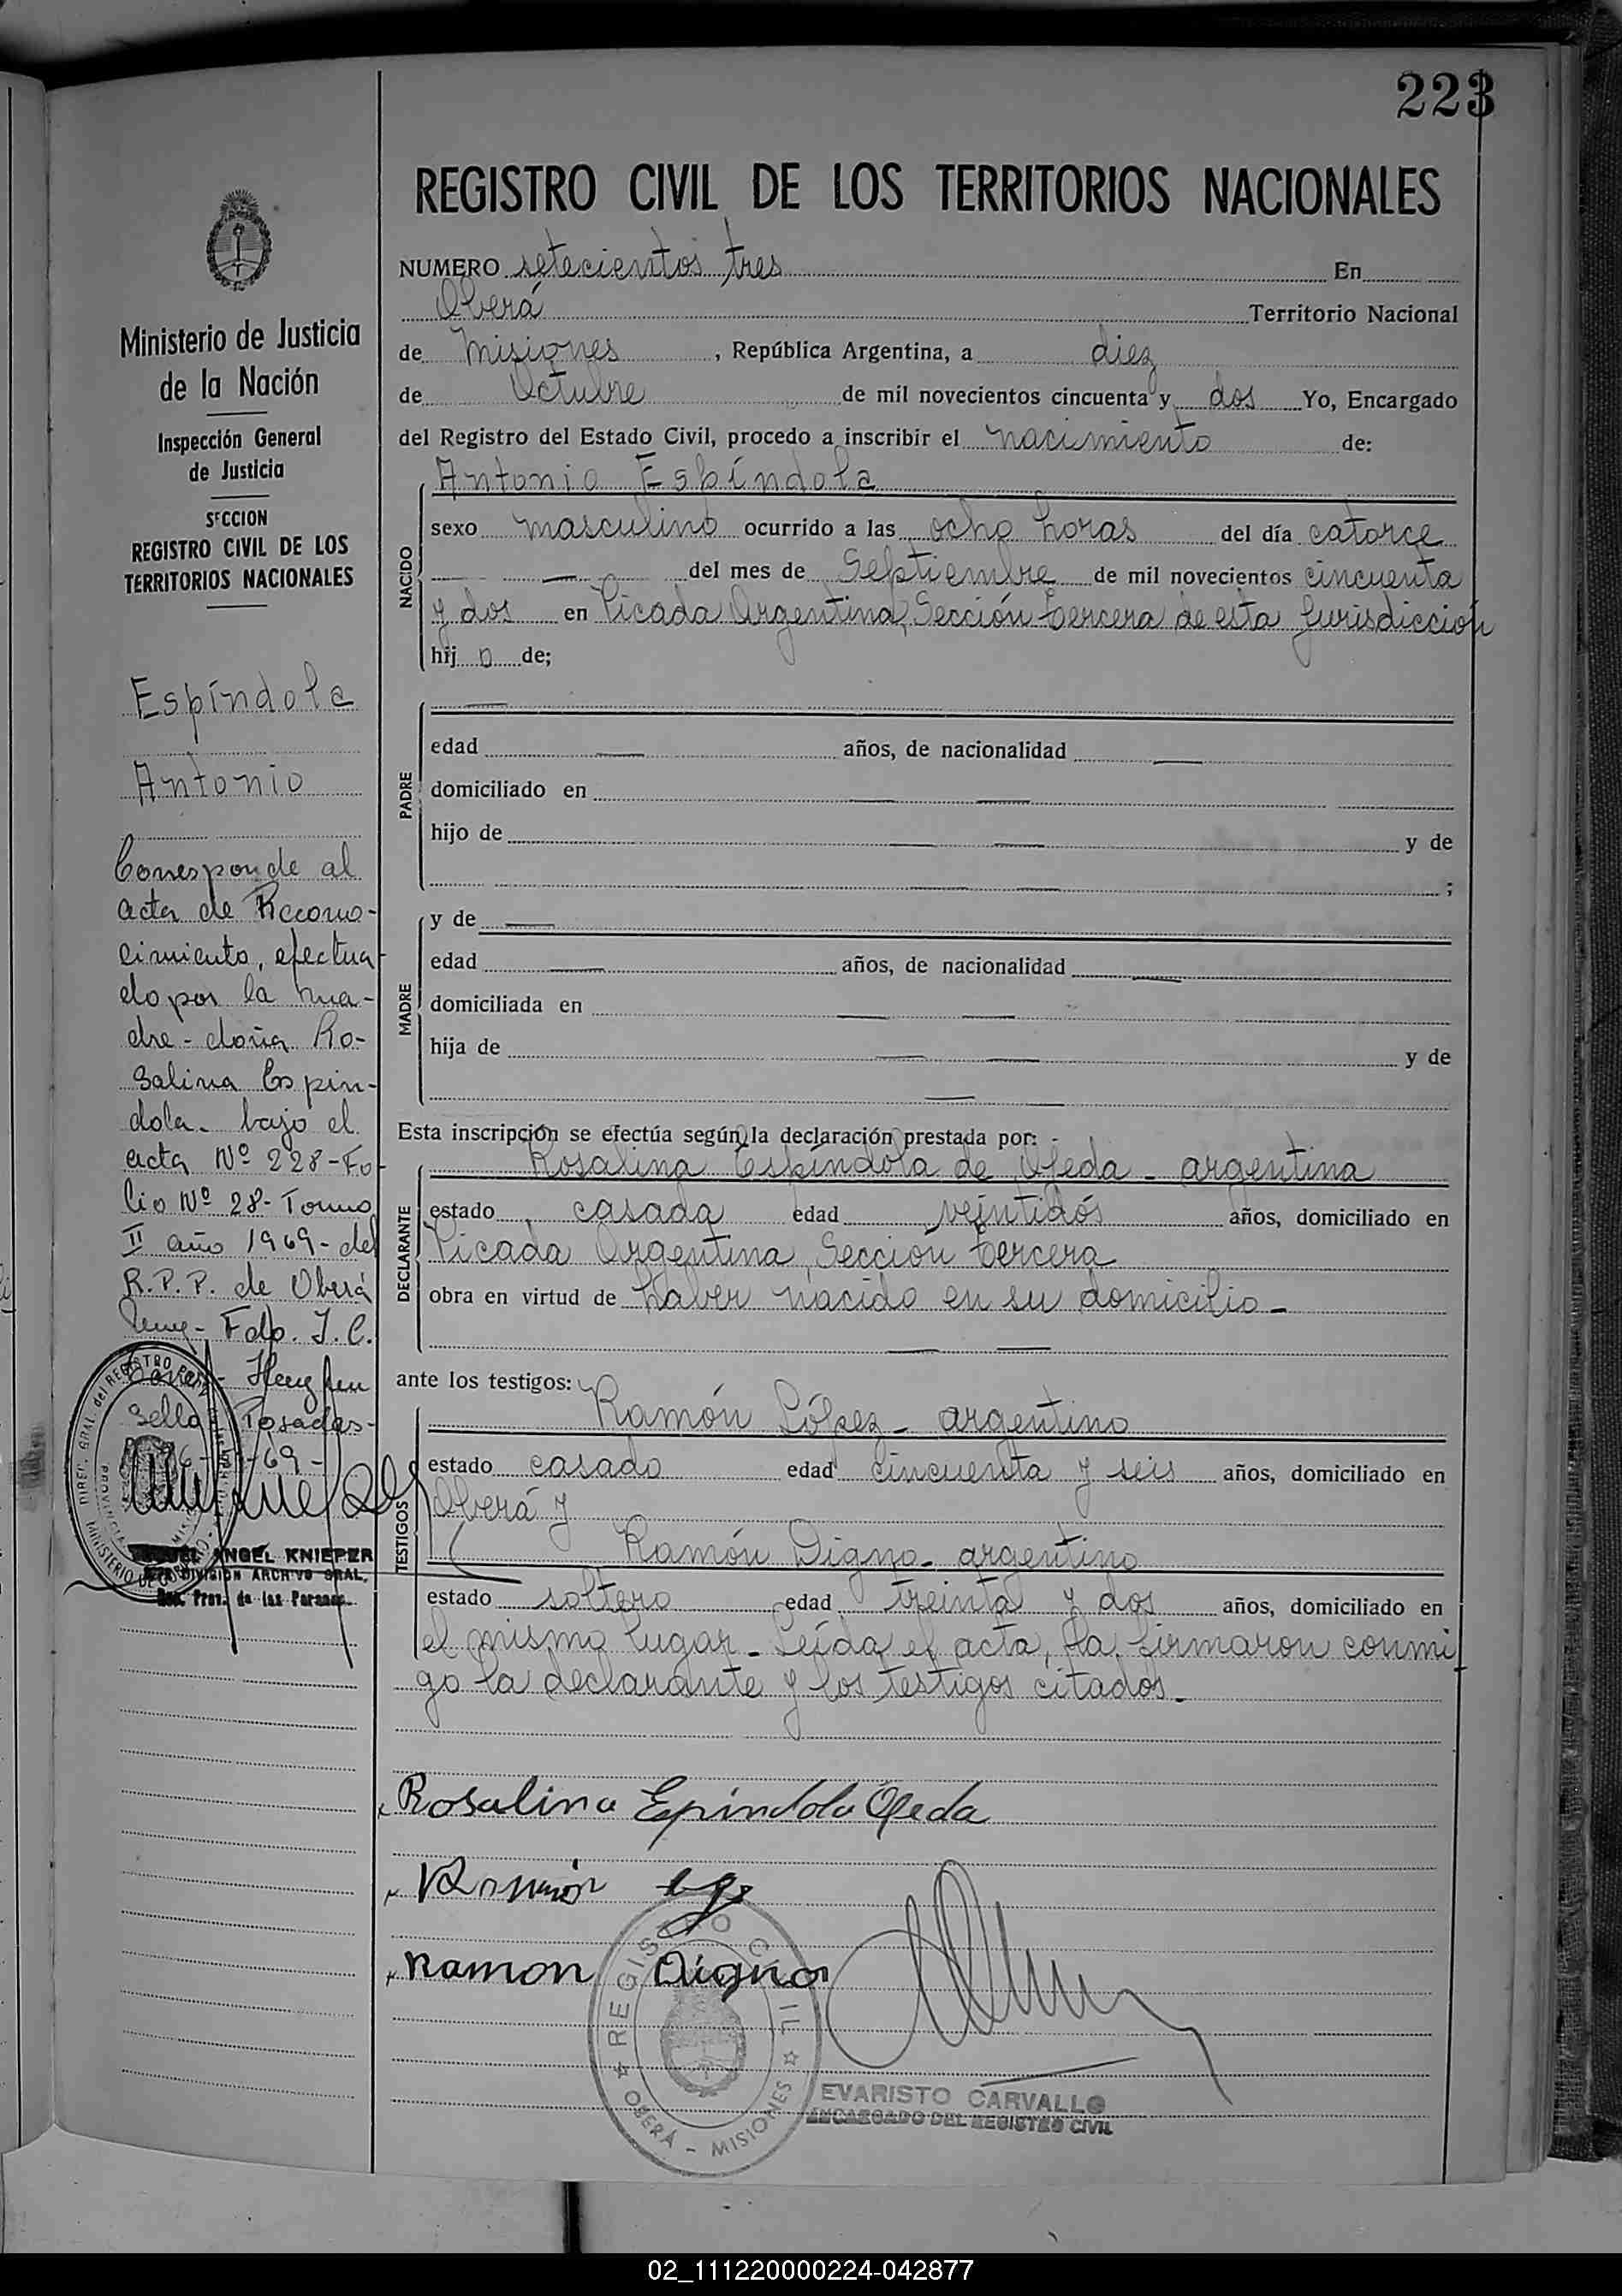 223
REGISTRO CIVIL DE LOS TERRITORIOS NACIONALES
Ministerio de Justicia
de la Nación
Inspección General
de Justicia
SECCION
REGISTRO CIVIL DE LOS
TERRITORIOS NACIONALES
Espíndola
Antonio
Corresponde al
acta de Recono-
cimiento, efectua-
do por la ma-
dre - doña Ro-
salina Espín-
dola - bajo el
acta Nº 228 - Fo-
lio Nº 28 - Tomo
II año 1969 - del
R.P.P. de Oberá
Fdo. J. C.
Sello Posadas -
69 -
ANGEL KNIEPER
DIVISION ARCHIVO GRAL.
Prov. de las Personas
NUMERO setecientos tres En
Oberá Territorio Nacional
de Misiones, República Argentina, a diez
de Octubre de mil novecientos cincuenta y dos Yo, Encargado
del Registro del Estado Civil, procedo a inscribir el nacimiento de:
Antonio Espíndola
NACIDO
sexo masculino ocurrido a las ocho horas del día catorce
— del mes de Septiembre de mil novecientos cincuenta
y dos en Picada Argentina, Sección tercera de esta Jurisdicción
hij o de;
PADRE
—
edad — años, de nacionalidad —
domiciliado en — —
hijo de — — y de
— — ;
MADRE
y de —
edad — años, de nacionalidad —
domiciliada en — —
hija de — — y de
— —
Esta inscripción se efectúa según la declaración prestada por: -
DECLARANTE
Rosalina Espíndola de Ojeda - argentina
estado casada edad veintidós años, domiciliado en
Picada Argentina, Sección tercera
obra en virtud de haber nacido en su domicilio -
— —
ante los testigos:
TESTIGOS
Ramón López - argentino
estado casado edad cincuenta y seis años, domiciliado en
Oberá y
Ramón Digno - argentino
estado soltero edad treinta y dos años, domiciliado en
el mismo lugar - Leída el acta, la firmaron conmi-
go la declarante y los testigos citados -
Rosalina Espíndola Ojeda
Ramón
Ramon Digno
REGISTRO CIVIL
OBERÁ - MISIONES
EVARISTO CARVALLO
ENCARGADO DEL REGISTRO CIVIL
02_111220000224-042877